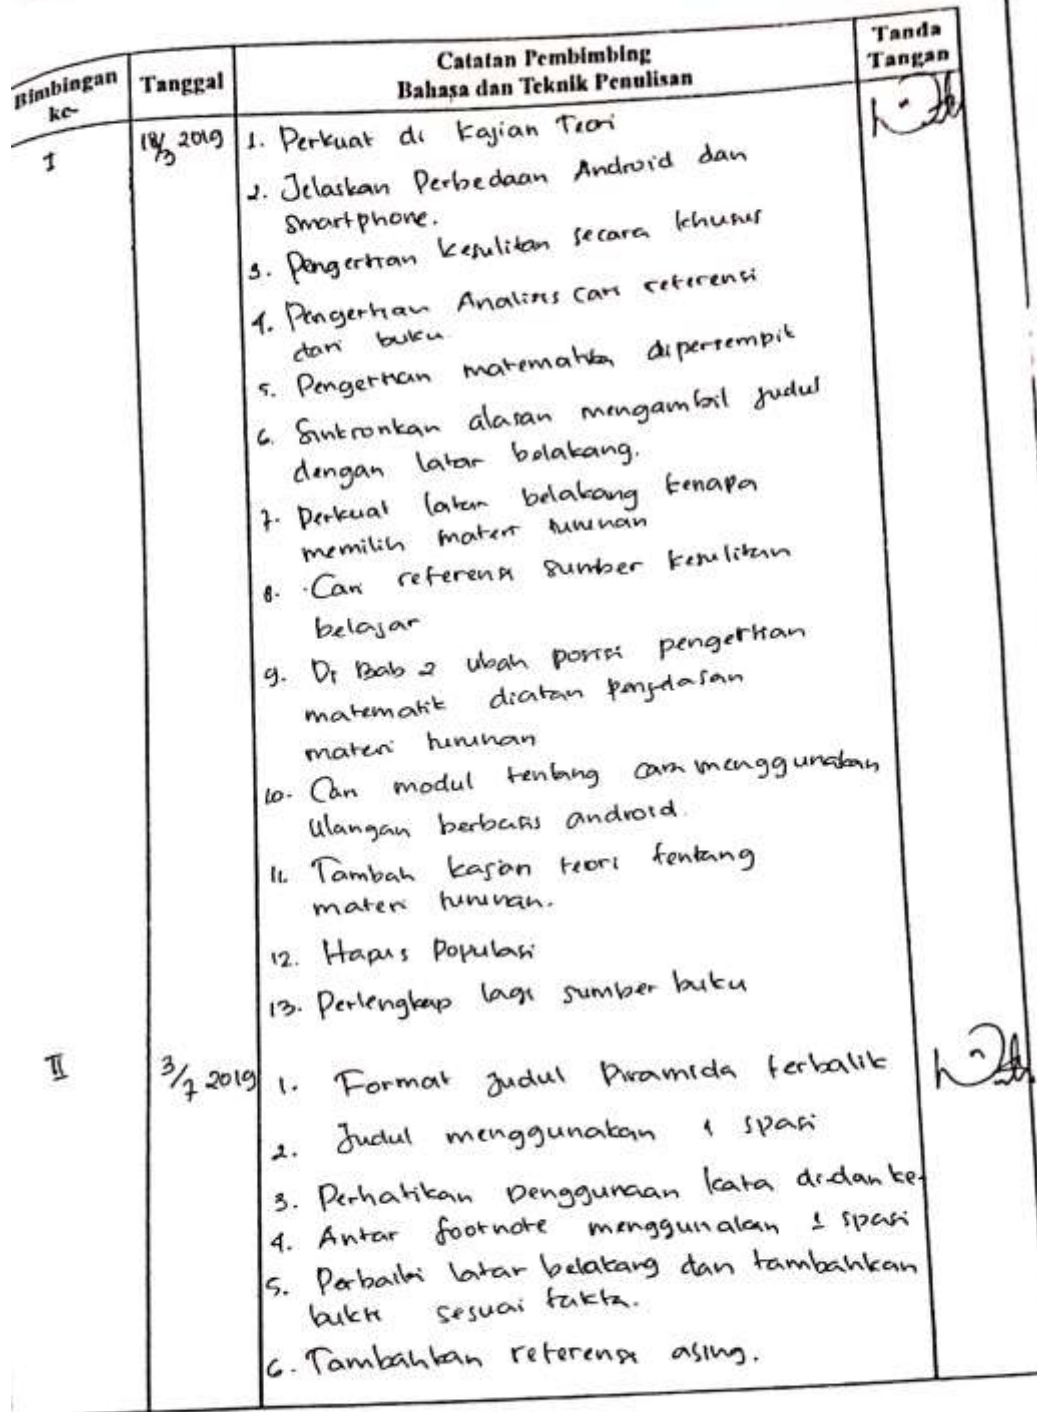 Bimbingan ke-
Tanggal
Catatan Pembimbing
Bahasa dan Teknik Penulisan
Tanda
Tangan
I
18/3 2019
1. Perkuat di Kajian Teori
2. Jelaskan Perbedaan Android dan
Smartphone.
3. Pengertian kesulitan secara khusus
4. Pengertian Analisis cari referensi
dari buku
5. Pengertian matematika dipersempit
6. Sinkronkan alasan mengambil judul
dengan latar belakang.
7. Perkuat latar belakang kenapa
memilih materi turunan
8. Cari referensi sumber kesulitan
belajar
9. Di Bab 2 ubah posisi pengertian
matematik diatan penjelasan
materi turunan
10. Cari modul tentang cara menggunakan
Ulangan berbasis android.
11. Tambah kajian teori tentang
materi turunan.
12. Hapus Populasi
13. Perlengkap lagi sumber buku
II
3/7 2019
1. Format Judul Piramida terbalik
2. Judul menggunakan 1 spasi
3. Perhatikan penggunaan kata di-dan ke-
4. Antar footnote menggunakan 1 spasi
5. Perbaiki latar belakang dan tambahkan
bukti sesuai fakta.
6. Tambahkan referensi asing.